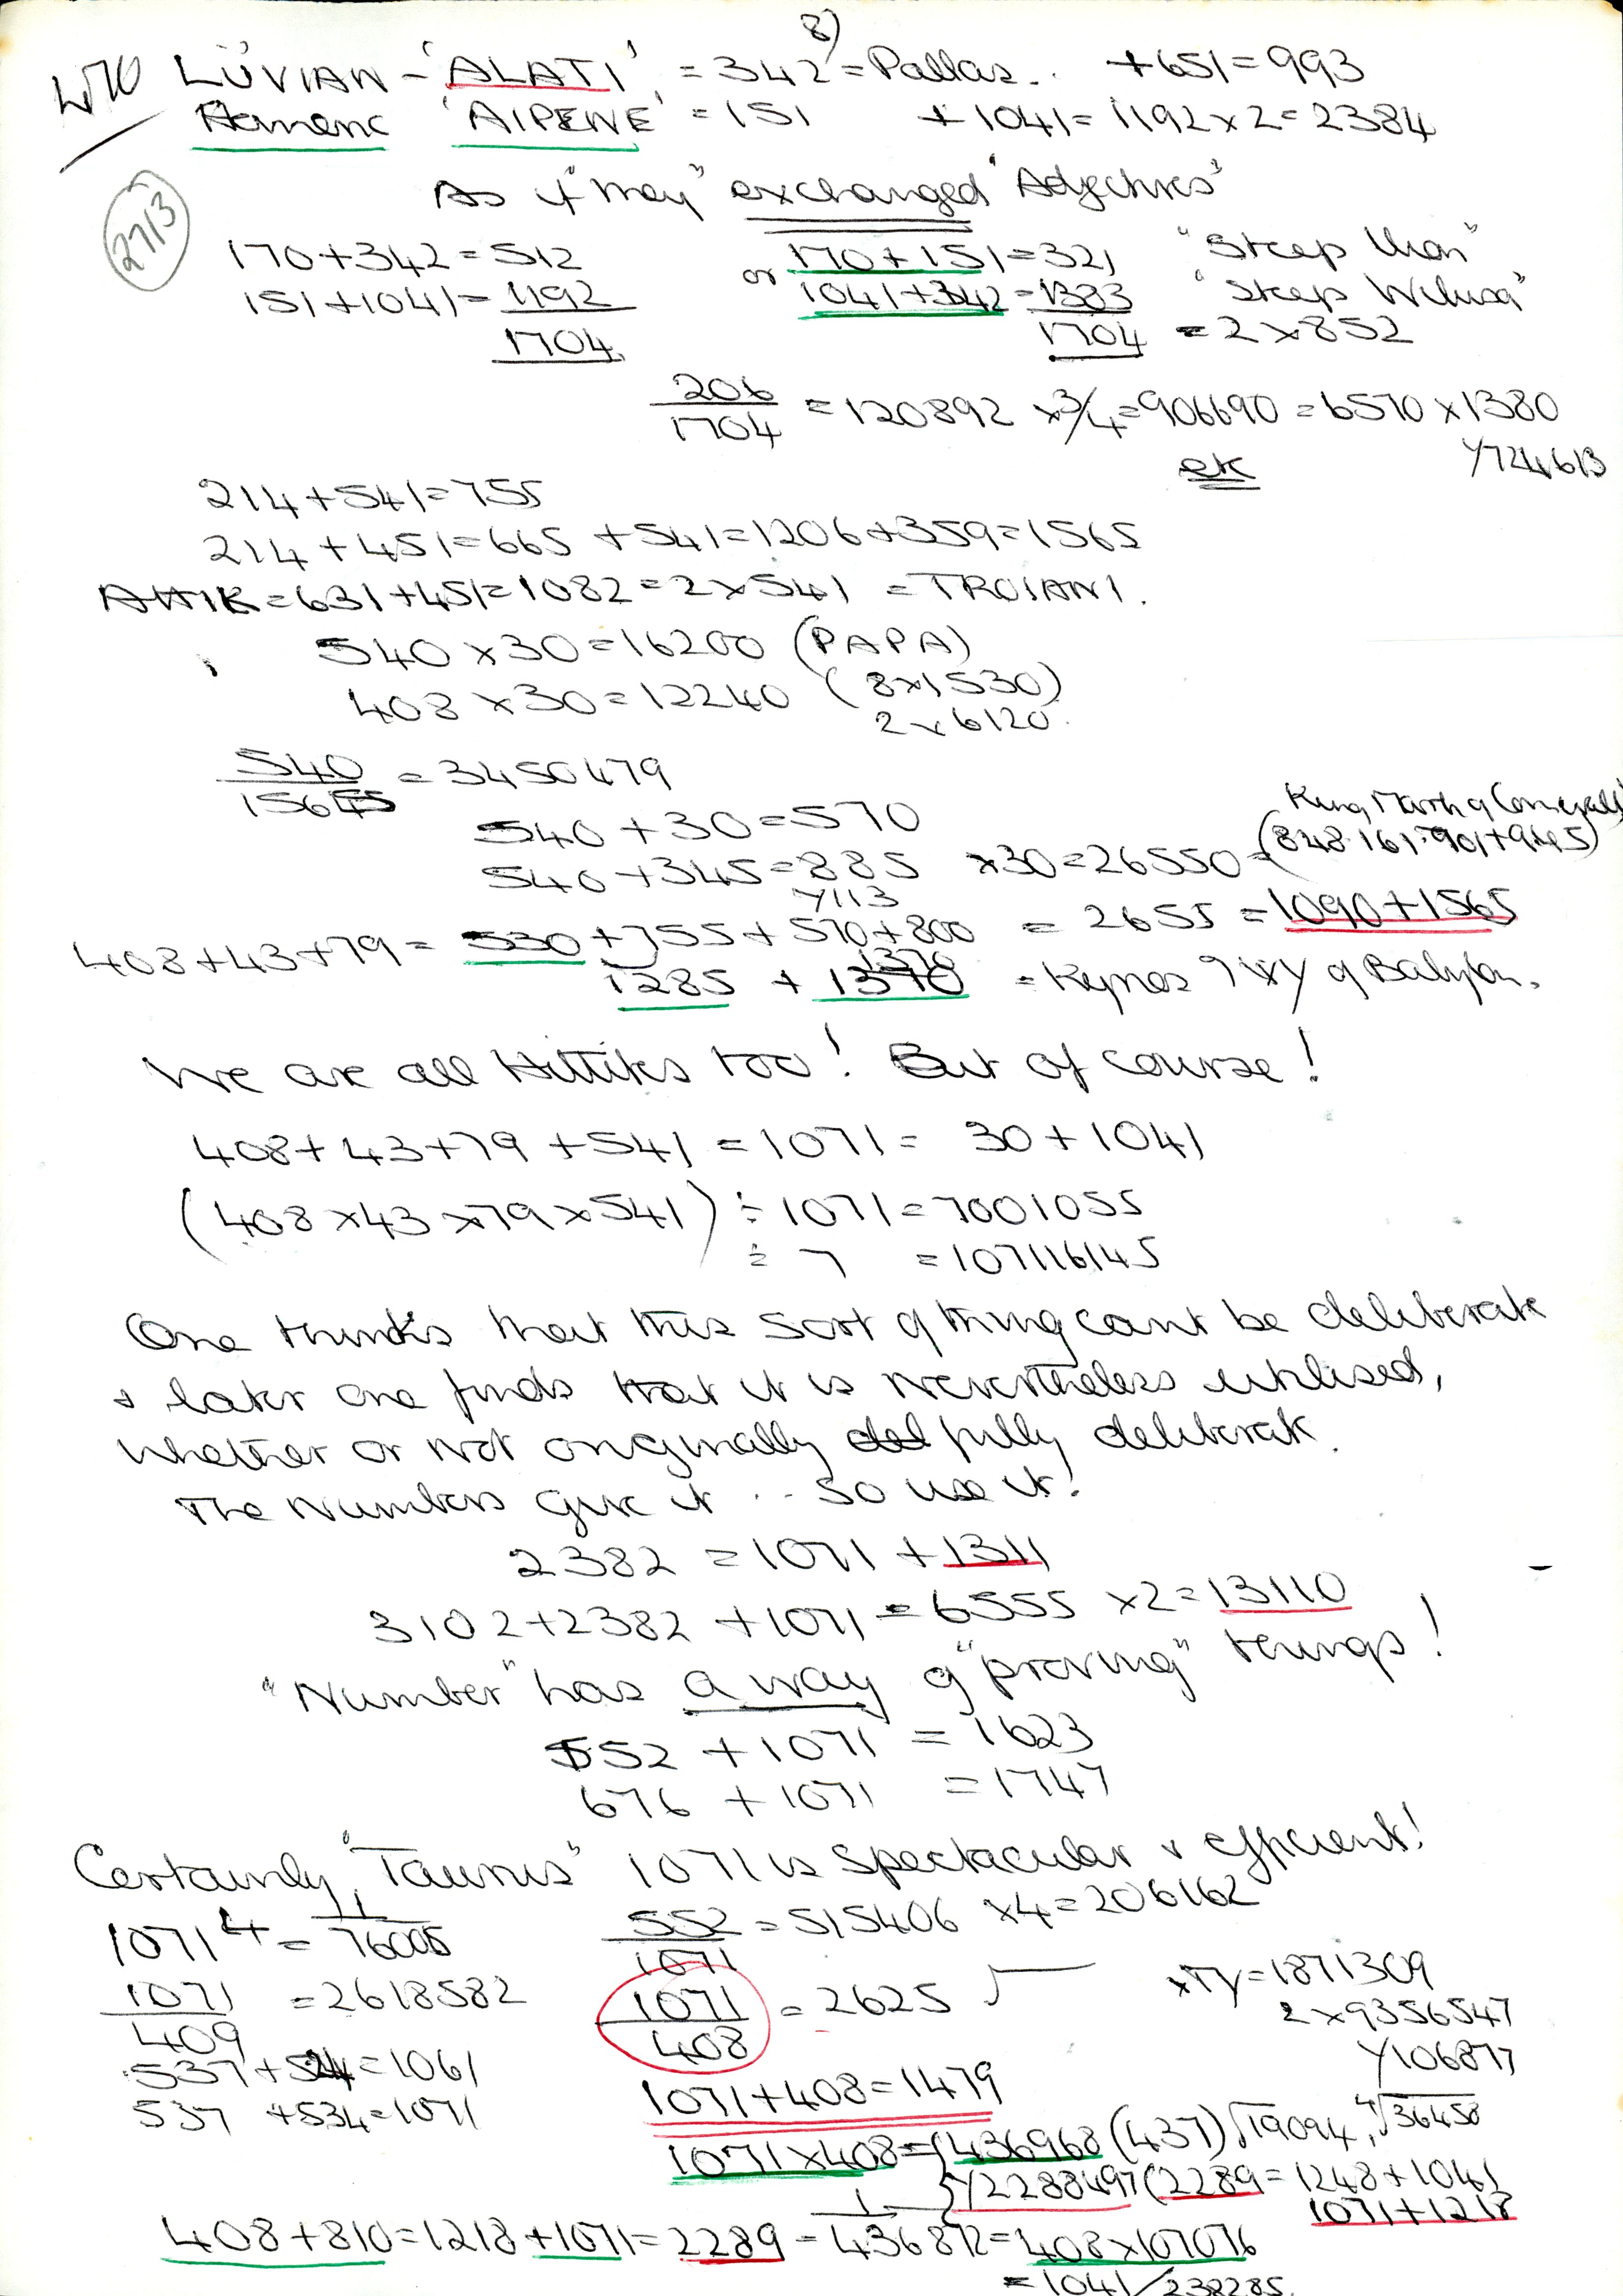 8)
W70 LUVIAN - 'ALATI' = 342 = Pallas.. +651=993
'AIPENE' = 151 +1041=1192x2=2384
As if "they" exchanged 'Adjectives'
2713
170+342=512 or 170+151=321 "Steep Ilion"
151+1041=1192 1041+342=1383 "Steep Wilusa"
1704 1704 = 2x852
206/1704 = 120892 x3/4=906690=6570x1380
ek Y724613
214+541=755
214+451=665 +541=1206+359=1565
ATTIK=631+451=1082=2x541 = TROIANI.
540x30=16200 (PAPA)
408x30=12240 (8x1530)
2x6120.
540/1565 = 3450479
540+30=570
King Mark of Cornwall
540+345=885 x30=26550= (848.161.901+945)
Y113
408+43+79= 530+755+570+800 = 2655 = 1090+1565
1370
1285 + 1370 = Kynos 9 xy of Babylon.
We are all Hittites too! But of course!
408+43+79+541=1071= 30+1041
(408x43x79x541) ÷1071=7001055
÷ 7 =107116145
One thinks that this sort of thing cant be deliberate
& later one finds that it is nevertheless utilised,
whether or not originally del fully deliberate.
The Numbers give it .. So use it!
2382 = 1071 + 1311
3102+2382+1071=6555 x2=13110
"Number" has a way of "proving" things!
552 + 1071 = 1623
676 + 1071 = 1747
Certainly "Taurus" 1071 is spectacular & efficient!
1071⁴ = 1/76005 552/1071 = 515406 x4=206162
1071/409 = 2618582 1071/408 = 2625 √ xTy=1871309
2x9356547
537+524=1061 Y106877
537 +534=1071 1071+408=1479
1071x408={436968 (437) √19094, ⁴√36458
Y2288497 (2289=1248+1041
1071+1218
408+810=1218+1071=2289=1/436872=408x107076
=1041/238285.